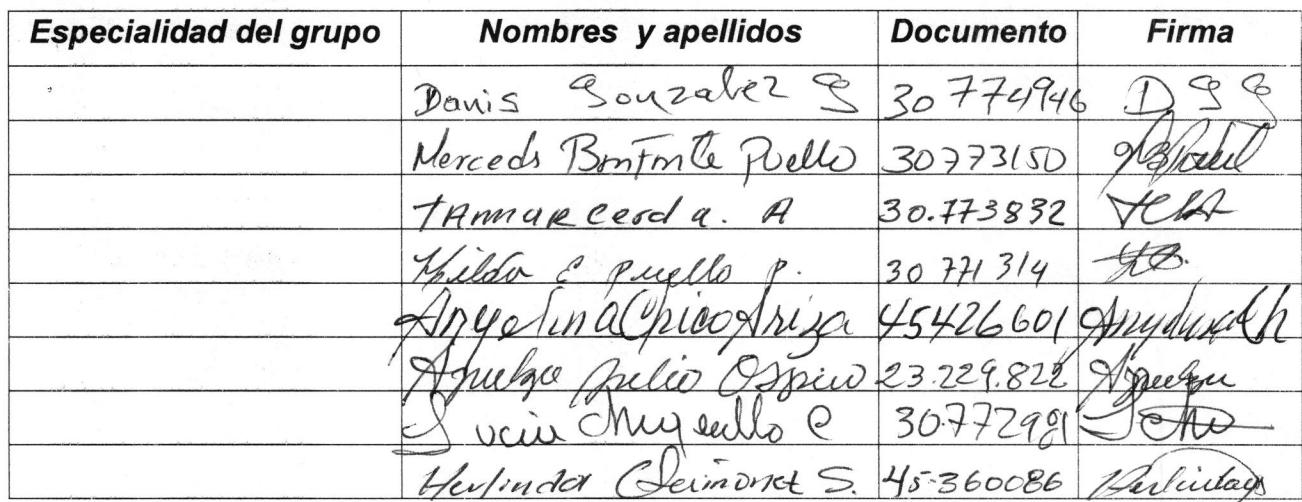 Especialidad del grupo Nombres y apellidos Documento Firma
Danis Gonzalez G 30 774946 D G G
Merceds Puello 30773150
TAmmar Cerda. A 30.773832 TCA
Hilda E Puello P. 30 771 314
Angelina Chico Ariza 45426601 Angelina Ch
Julio Ospino 23.229.822
Lucia Murillo C 30772981
Herlinda S. 45-360086 Herlinda